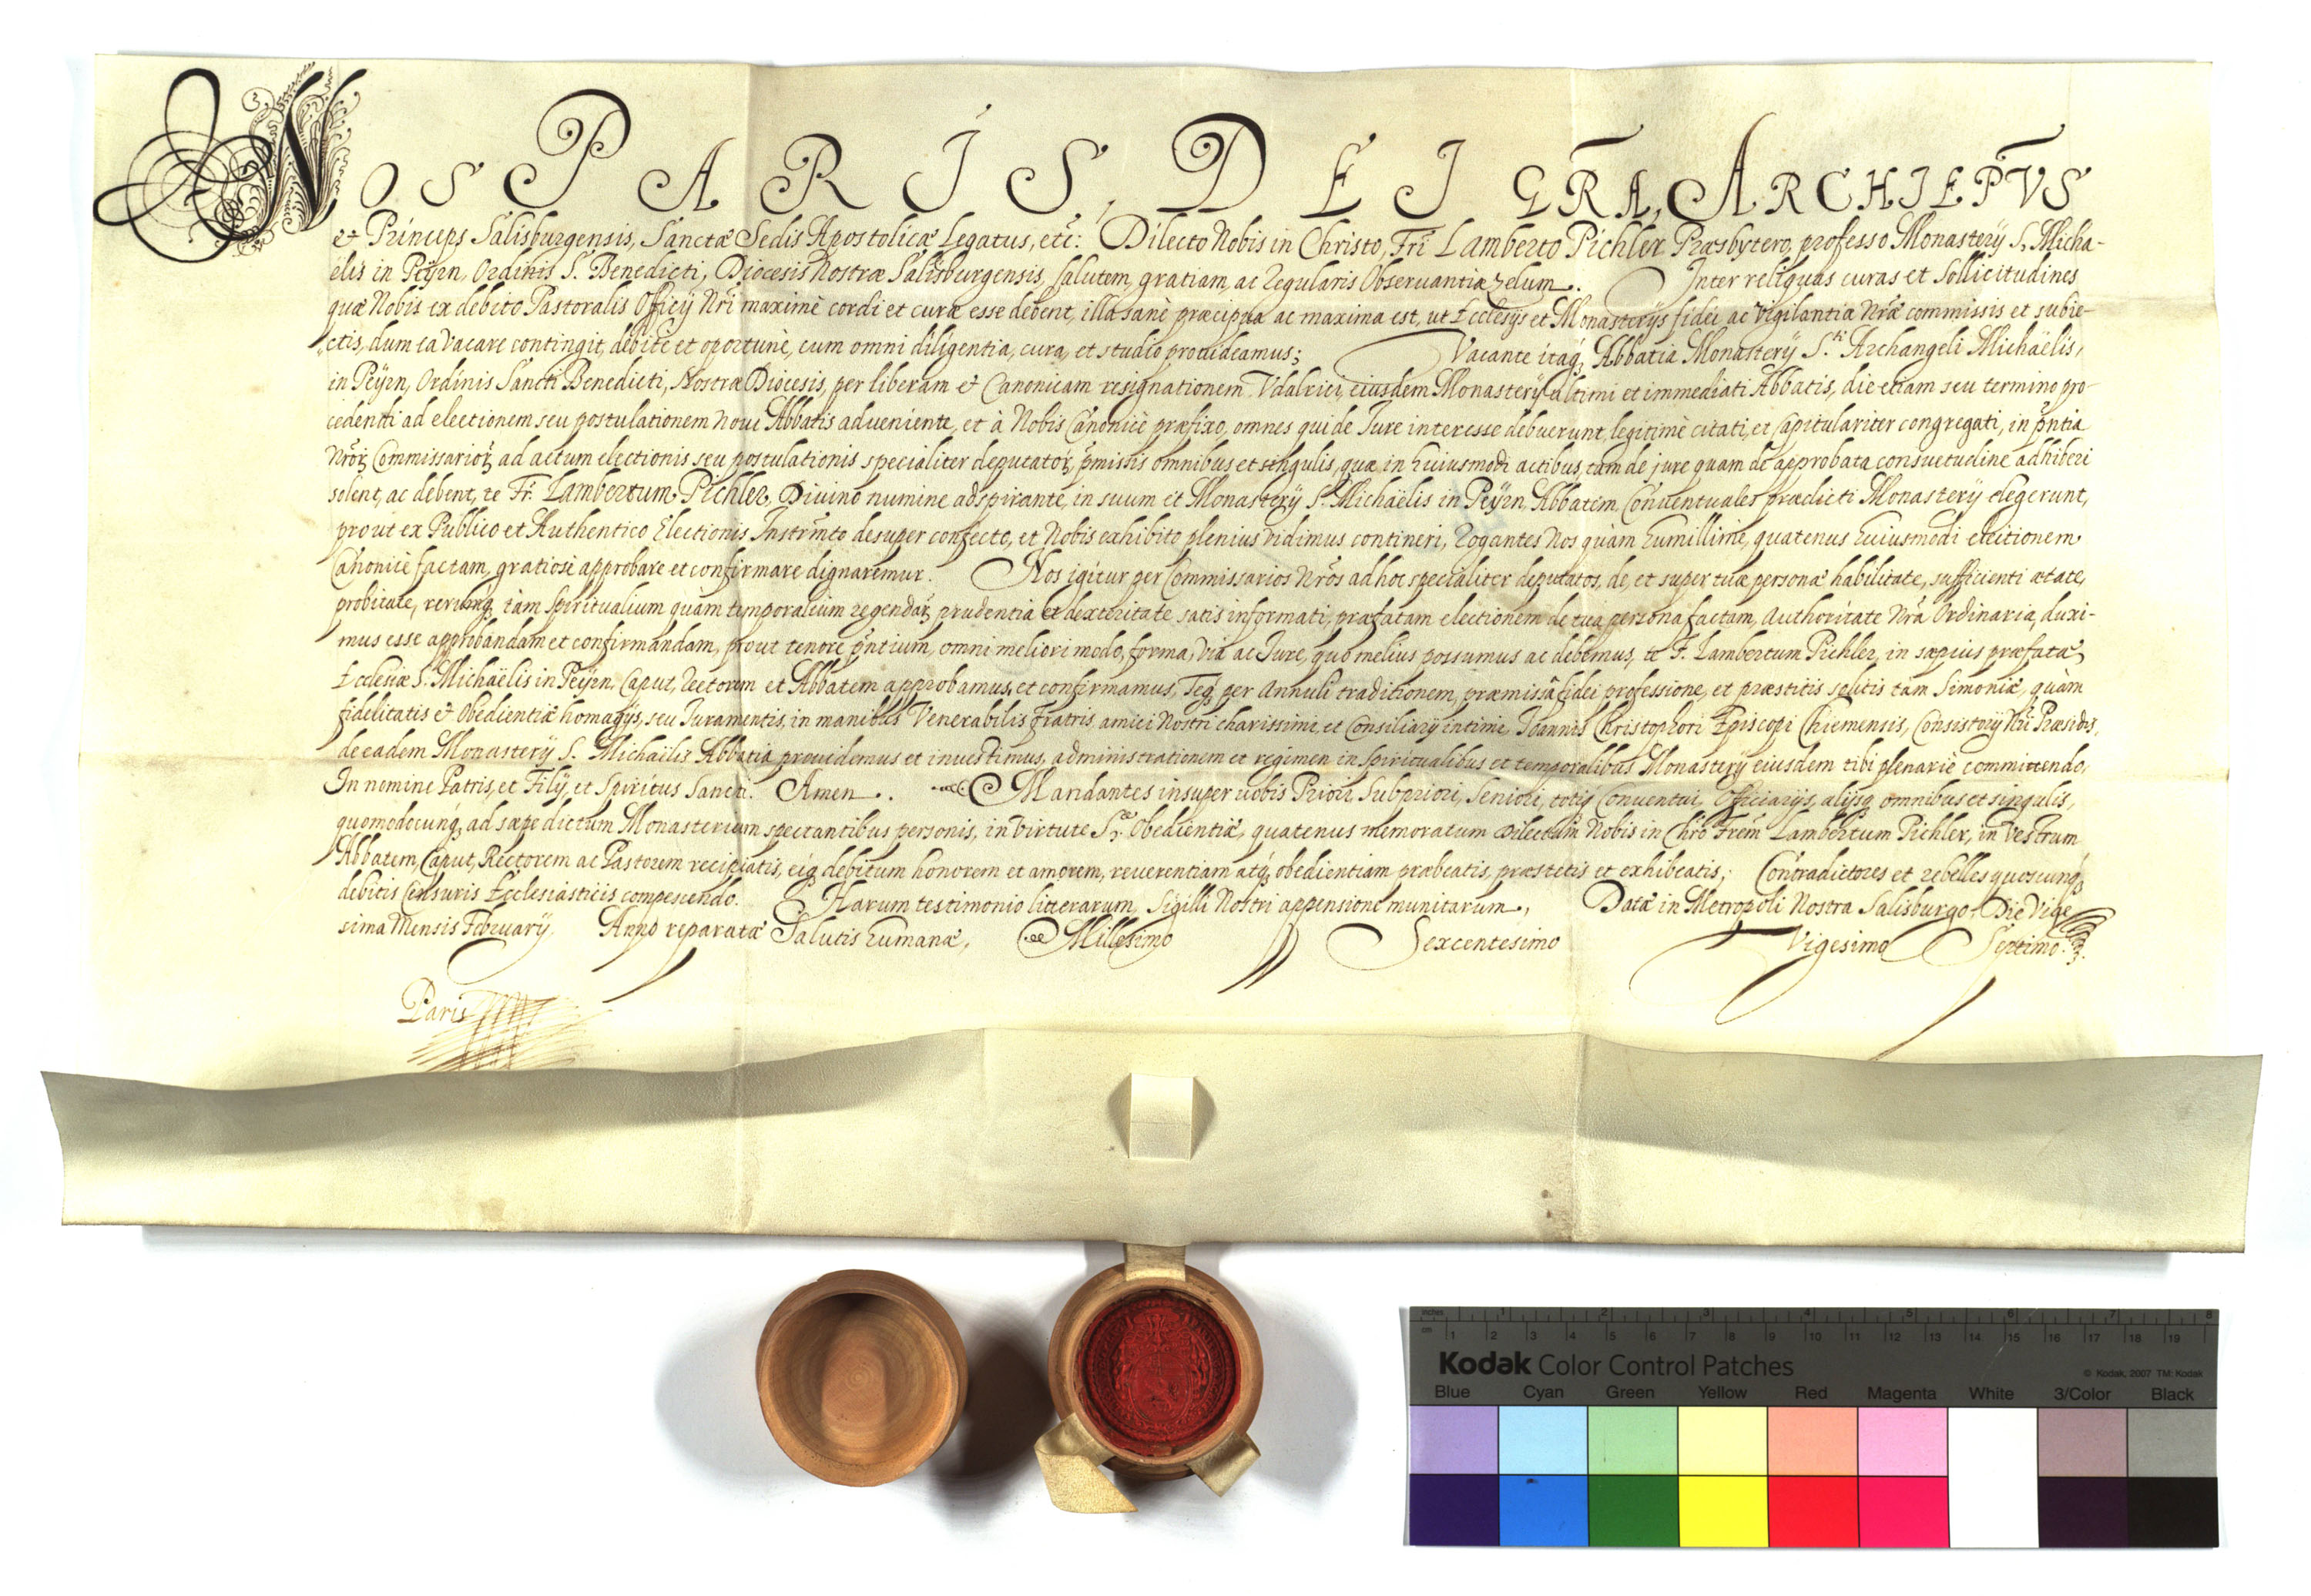 NOS PARIS, DEI GRA, ARCHIEPVS
et Princeps Salisburgensis, Sanctæ Sedis Apostolicæ Legatus, etc: Dilecto Nobis in Christo, Fri Lamberto Pichler Præsbytero, professo Monasterij S. Micha-
elis in Peÿrn, Ordinis S. Benedicti, Diocesis Nostræ Salisburgensis, salutem, gratiam, ac regularis Obseruantiæ zelum. Inter reliquas curas et sollicitudines
quæ Nobis ex debito Pastoralis Officij Nri maximè cordi et curæ esse debent, illa sanè præcipua ac maxima est, ut Ecclesijs et Monasterijs fidei ac vigilantiæ Nræ commissis et subie-
ctis, dum ea vacare contingit, debitè et oportunè, cum omni diligentia, cura, et studio prouideamus; Vacante itaq3 Abbatia Monasterij S.ti Archangeli Michaëlis,
in Peÿrn, Ordinis Sancti Benedicti, Nostræ Diocesis, per liberam et Canonicam resignationem Vdalrici, eiusdem Monasterij ultimi et immediati Abbatis, die etiam seu termino pro-
cedendi ad electionem seu postulationem noui Abbatis adueniente, et à Nobis Canonicè præfixo, omnes qui de Jure interesse debuerunt, legitimè citati, et Capitulariter congregati, in pntia
Nror Commissarior ad actum electionis seu postulationis specialiter deputator, pmissis omnibus et singulis, quæ in huiusmodi actibus, tam de jure quam de approbata consuetudine adhiberi
solent, ac debent, te Fr. Lambertum Pichler, Diuino numine adspirante, in suum et Monasterij S. Michaëlis in Peÿrn Abbatem, Conuentuales prædicti Monasterij elegerunt,
prout ex Publico et Authentico Electionis Instrmto desuper confecto, et Nobis exhibito plenius vidimus contineri, rogantes Nos quàm humillimè, quatenus huiusmodi electionem
Canonicè factam, gratiosè approbare et confirmare dignaremur. Nos igitur per Commissarios Nros ad hoc specialiter deputatos, de, et super tuæ personæ habilitate, sufficienti ætate,
probitate, rerumq3 tàm spiritualium quam temporalium regendar prudentia et dexteritate satis informati, præfatam electionem de tua persona factam, Authoritate Nra Ordinaria, duxi-
mus esse approbandam et confirmandam, prout tenore pntium, omni meliori modo, forma, via ac Jure, quo melius possumus ac debemus, te F. Lambertum Pichler, in sæpius præfatæ
Ecclesiæ S. Michaëlis in Peÿrn, Caput, Rectorem et Abbatem approbamus, et confirmamus, Teq3 per Annuli traditionem, præmissâ fidei professione, et præstitis solitis tàm Simoniæ, quàm
fidelitatis et Obedientiæ homagijs, seu Juramentis, in manibus Venerabilis fratris, amici Nostri charissimi, et Consiliarij intimi, Joannis Christophori Episcopi Chiemensis, Consistorij Nri Præsidis,
de eadem Monasterij S. Michaëlis Abbatia prouidemus et inuestimus, administrationem et regimen in spiritualibus et temporalibus Monasterij eiusdem tibi plenariè committendo,
In nomine Patris, et Filij, et Spiritus Sancti. Amen. Mandantes insuper uobis Priori, Subpriori, Seniori, totiq3 Conuentui, Officiarijs, alijsq3 omnibus et singulis,
quomodocunq3 ad sæpe dictum Monasterium spectantibus personis, in virtute S.æ Obedientiæ, quatenus memoratum Dilectum Nobis in Chro Frem Lambertum Pichler, in Vestrum
Abbatem, Caput, Rectorem ac Pastorem recipiatis, eiq3 debitum honorem et amorem, reuerentiam atq3 obedientiam præbeatis, præstetis et exhibeatis, Contradictores et rebelles quoscunq3
debitis Censuris Ecclesiasticis compescendo. Harum testimonio litterarum, Sigilli Nostri appensione munitarum, Datæ in Metropoli Nostra Salisburgo, Die Vige
sima Mensis February. Anno reparatæ Salutis humanæ, Millesimo Sexcentesimo Vigesimo Septimo.
Paris
inches 1 2 3 4 5 6 7 8
cm 1 2 3 4 5 6 7 8 9 10 11 12 13 14 15 16 17 18 19
Kodak Color Control Patches
© Kodak, 2007 TM: Kodak
Blue Cyan Green Yellow Red Magenta White 3/Color Black